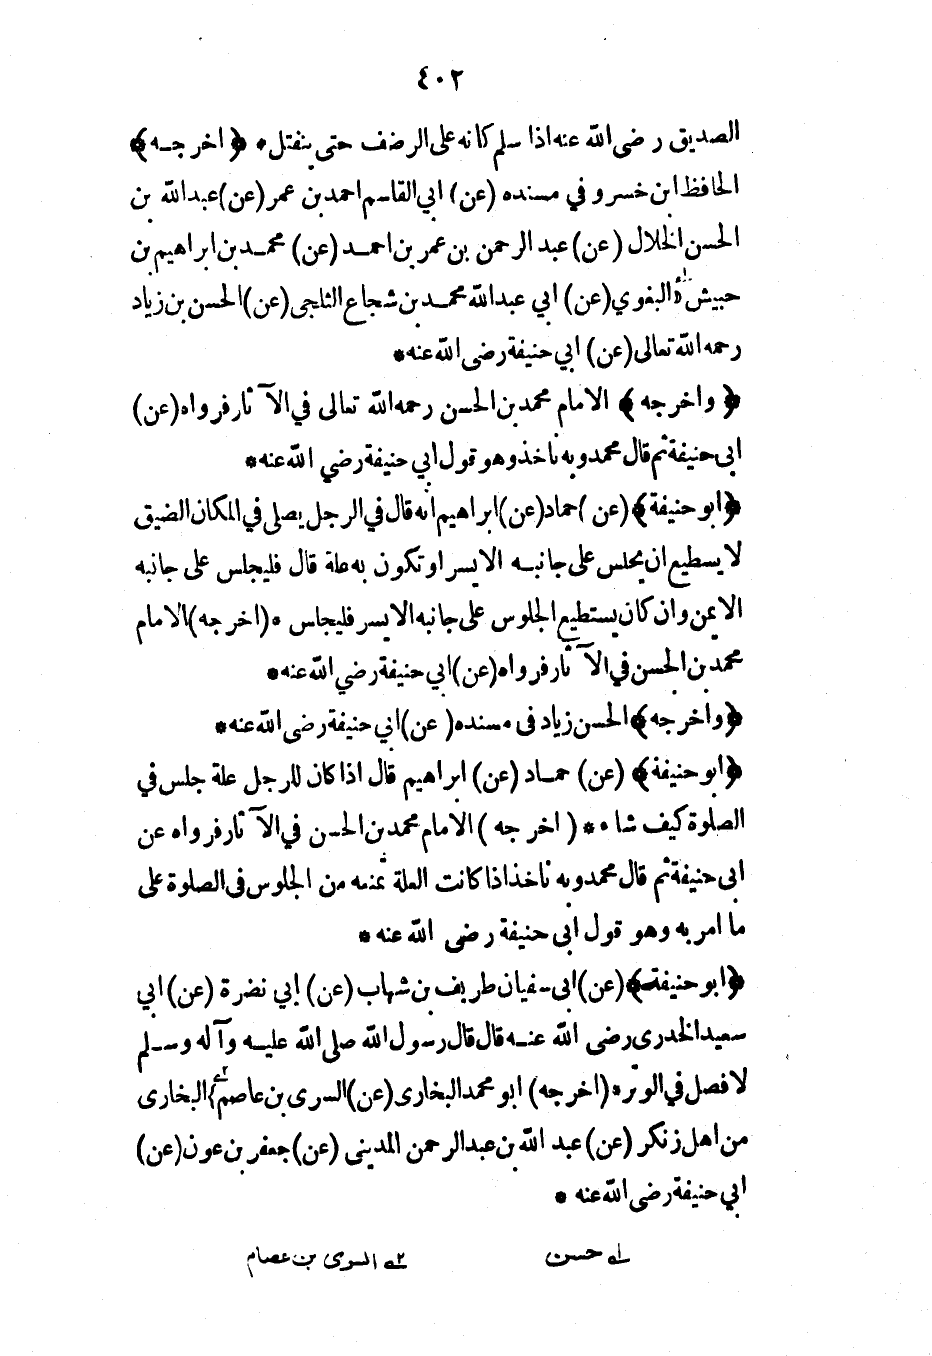 ٤٠٢
الصديق رضى الله عنه اذا سلم كانه على الرضف حتى ينفتل * ﴿ اخرجه ﴾
الحافظ ابن خسرو في مسنده (عن) ابي القاسم احمد بن عمر (عن) عبد الله بن
الحسن الخلال (عن) عبد الرحمن بن عمر بن احمد (عن) محمد بن ابراهيم بن
حبيش البغوي (عن) ابي عبد الله محمد بن شجاع الثلجى (عن) الحسن بن زياد
رحمه الله تعالى (عن) ابي حنيفة رضى الله عنه *
﴿ واخرجه ﴾ الامام محمد بن الحسن رحمه الله تعالى في الآثار فرواه (عن)
ابى حنيفة ثم قال محمد وبه ناخذ وهو قول ابي حنيفة رضي الله عنه *
﴿ ابو حنيفة ﴾ (عن) حماد (عن) ابراهيم انه قال في الرجل يصلى في المكان الضيق
لا يسطيع ان يجلس على جانبه الايسر او تكون به علة قال فليجلس على جانبه
الايمن وان كان يستطيع الجلوس على جانبه الايسر فليجلس * (اخرجه) الامام
محمد بن الحسن في الآثار فرواه (عن) ابي حنيفة رضي الله عنه *
﴿ واخرجه ﴾ الحسن زياد فى مسنده (عن) ابي حنيفة رضى الله عنه *
﴿ ابو حنيفة ﴾ (عن) حماد (عن) ابراهيم قال اذا كان للرجل علة جلس في
الصلوة كيف شاء * (اخرجه) الامام محمد بن الحسن في الآثار فرواه عن
ابى حنيفة ثم قال محمد وبه ناخذ اذا كانت العلة تمنعه من الجلوس فى الصلوة على
ما امر به وهو قول ابى حنيفة رضى الله عنه *
﴿ ابو حنيفة ﴾ (عن) ابى سفيان طريف بن شهاب (عن) ابي نضرة (عن) ابي
سعيد الخدرى رضى الله عنه قال قال رسول الله صلى الله عليه وآله وسلم
لا فصل في الوتر * (اخرجه) ابو محمد البخارى (عن) السرى بن عاصم البخارى
من اهل زنكر (عن) عبد الله بن عبد الرحمن المديني (عن) جعفر بن عون (عن)
ابي حنيفة رضى الله عنه *
١ـه حسن ٢ـه السرى بن عصام